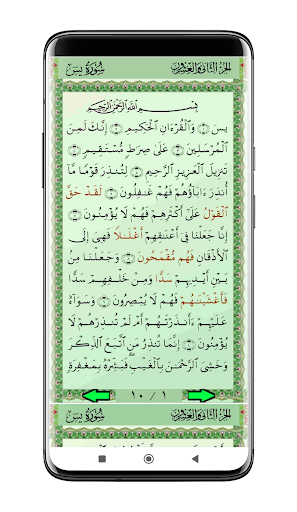 الجزء الثاني والعشرون سُورَةُ يسٓ
بِسْمِ اللَّهِ الرَّحْمَٰنِ الرَّحِيمِ
يسٓ ۝ وَالْقُرْءَانِ الْحَكِيمِ ۝ إِنَّكَ لَمِنَ
الْمُرْسَلِينَ ۝ عَلَىٰ صِرَٰطٍ مُّسْتَقِيمٍ ۝
تَنزِيلَ الْعَزِيزِ الرَّحِيمِ ۝ لِتُنذِرَ قَوْمًا مَّا
أُنذِرَ ءَابَآؤُهُمْ فَهُمْ غَٰفِلُونَ ۝ لَقَدْ حَقَّ
الْقَوْلُ عَلَىٰ أَكْثَرِهِمْ فَهُمْ لَا يُؤْمِنُونَ ۝
إِنَّا جَعَلْنَا فِىٓ أَعْنَٰقِهِمْ أَغْلَٰلًا فَهِىَ إِلَى
الْأَذْقَانِ فَهُم مُّقْمَحُونَ ۝ وَجَعَلْنَا مِنۢ
بَيْنِ أَيْدِيهِمْ سَدًّا وَمِنْ خَلْفِهِمْ سَدًّا
فَأَغْشَيْنَٰهُمْ فَهُمْ لَا يُبْصِرُونَ ۝ وَسَوَآءٌ
عَلَيْهِمْ ءَأَنذَرْتَهُمْ أَمْ لَمْ تُنذِرْهُمْ لَا
يُؤْمِنُونَ ۝ إِنَّمَا تُنذِرُ مَنِ اتَّبَعَ الذِّكْرَ
وَخَشِىَ الرَّحْمَٰنَ بِالْغَيْبِ فَبَشِّرْهُ بِمَغْفِرَةٍ
١٠ / ١
الجزء الثاني والعشرون سُورَةُ يسٓ